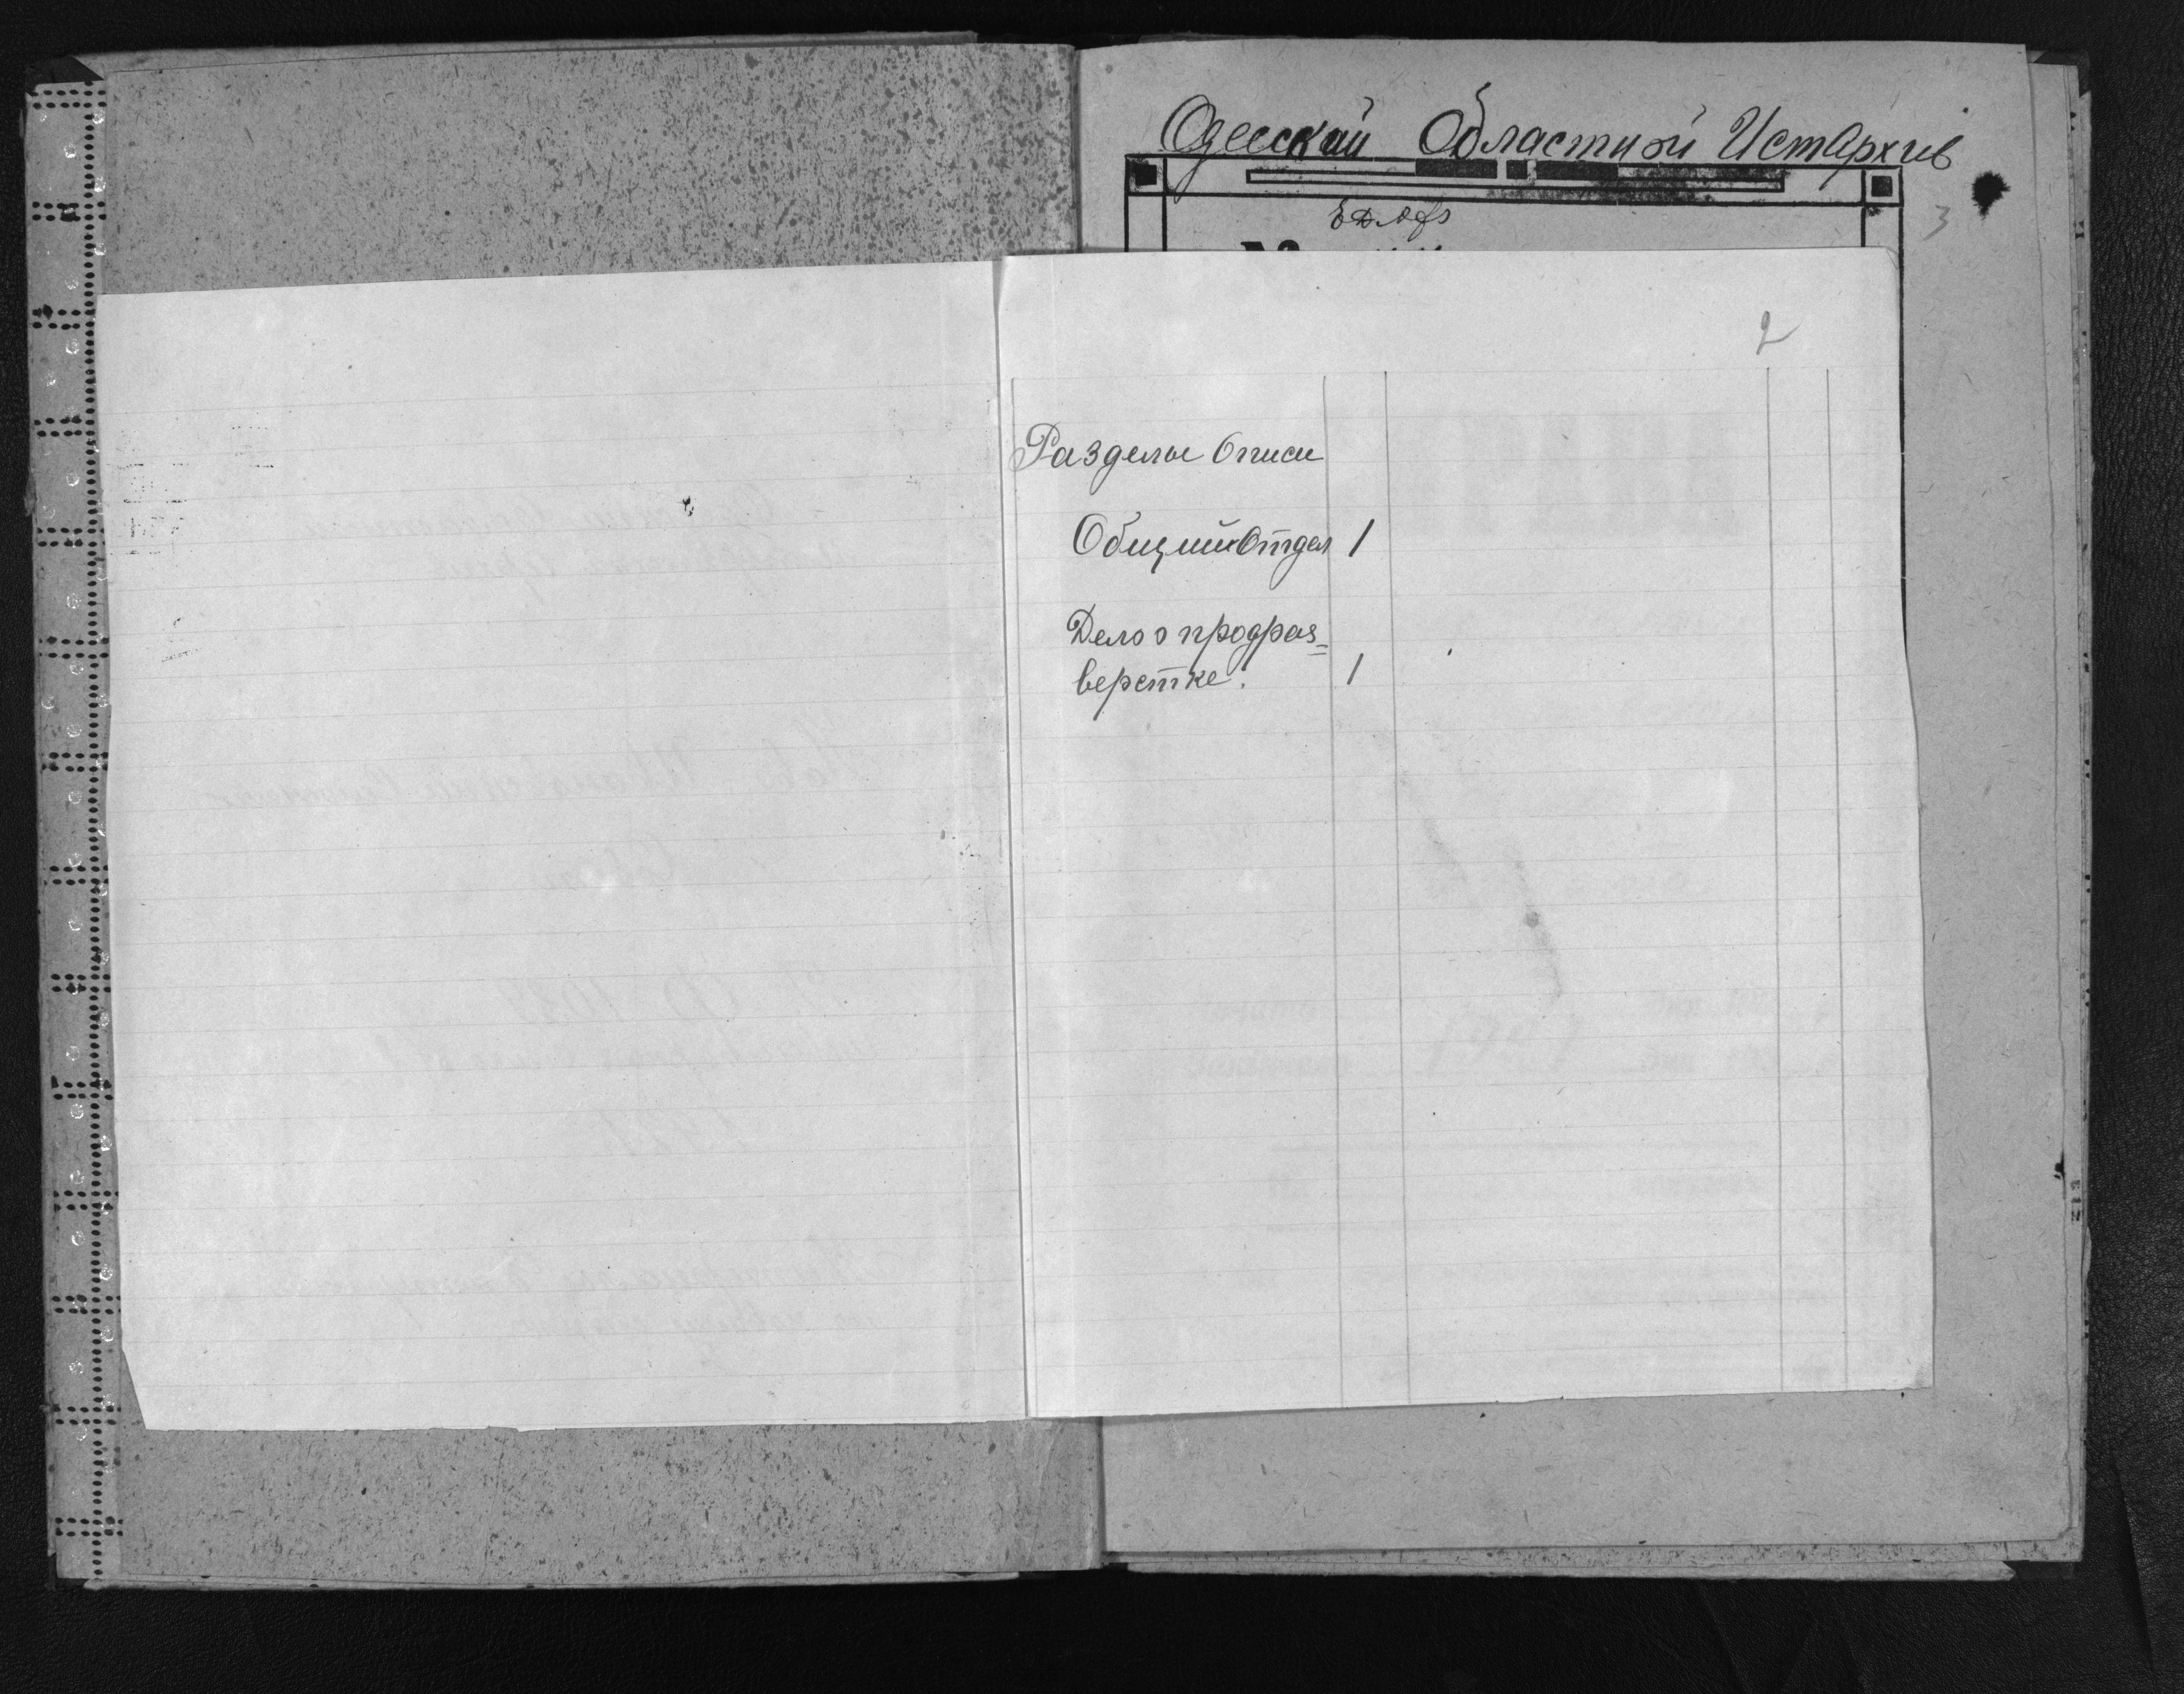 Одесский Областной ИстАрхив
3
2
Разделы Описи
Общий Отдел 1
Дело о продраз=
верстке. 1